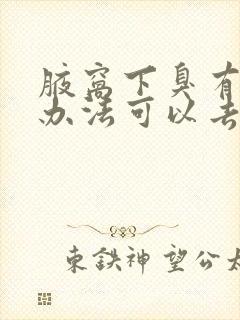 腋窝下臭有
办法可以去
東鉄神望公太